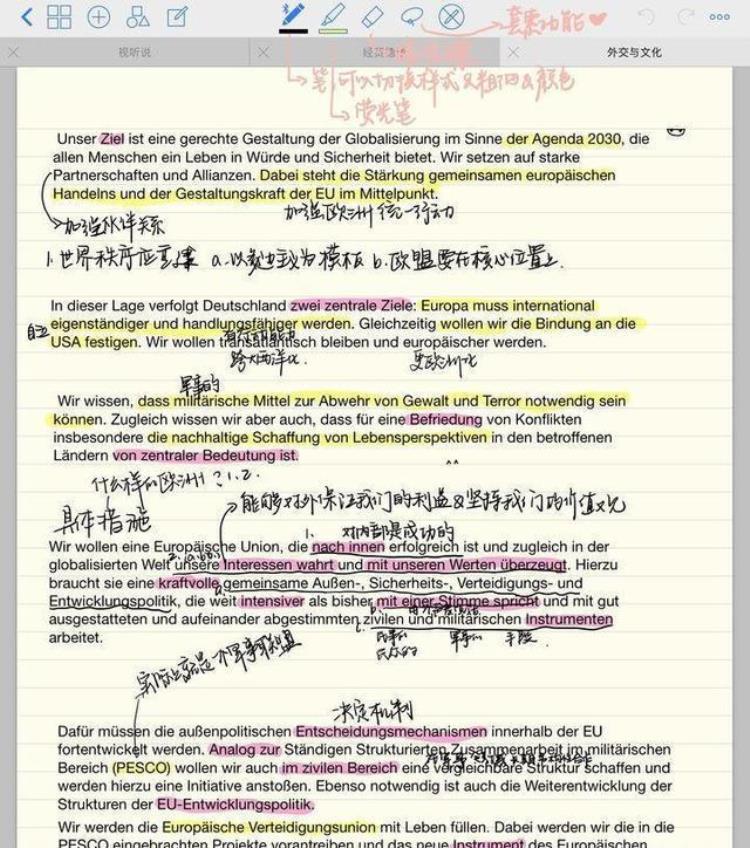 套索功能
视听说
外交与文化
笔 可以切换样式及粗细&颜色
荧光笔
Unser Ziel ist eine gerechte Gestaltung der Globalisierung im Sinne der Agenda 2030, die
allen Menschen ein Leben in Würde und Sicherheit bietet. Wir setzen auf starke
Partnerschaften und Allianzen. Dabei steht die Stärkung gemeinsamen europäischen
Handelns und der Gestaltungskraft der EU im Mittelpunkt.
加强伙伴关系
加强欧洲统一行动
b. 欧盟要在核心位置上.
In dieser Lage verfolgt Deutschland zwei zentrale Ziele: Europa muss international
自立
eigenständiger und handlungsfähiger werden. Gleichzeitig wollen wir die Bindung an die
USA festigen. Wir wollen transatlantisch bleiben und europäischer werden.
跨大西洋化.
更欧洲化
军事的
Wir wissen, dass militärische Mittel zur Abwehr von Gewalt und Terror notwendig sein
können. Zugleich wissen wir aber auch, dass für eine Befriedung von Konflikten
insbesondere die nachhaltige Schaffung von Lebensperspektiven in den betroffenen
Ländern von zentraler Bedeutung ist.
什么样的欧洲? 1. 2.
能够对外保证我们的利益&坚持我们的价值观
具体措施
1. 对内部是成功的
Wir wollen eine Europäische Union, die nach innen erfolgreich ist und zugleich in der
globalisierten Welt unsere Interessen wahrt und mit unseren Werten überzeugt. Hierzu
braucht sie eine kraftvolle gemeinsame Außen-, Sicherheits-, Verteidigungs- und
Entwicklungspolitik, die weit intensiver als bisher mit einer Stimme spricht und mit gut
ausgestatteten und aufeinander abgestimmten zivilen und militärischen Instrumenten
arbeitet.
军事的
手段.
决定机制
Dafür müssen die außenpolitischen Entscheidungsmechanismen innerhalb der EU
fortentwickelt werden. Analog zur Ständigen Strukturierten Zusammenarbeit im militärischen
Bereich (PESCO) wollen wir auch im zivilen Bereich eine vergleichbare Struktur schaffen und
werden hierzu eine Initiative anstoßen. Ebenso notwendig ist auch die Weiterentwicklung der
Strukturen der EU-Entwicklungspolitik.
Wir werden die Europäische Verteidigungsunion mit Leben füllen. Dabei werden wir die in die
PESCO eingebrachten Projekte vorantreiben und das neue Instrument des Europäischen